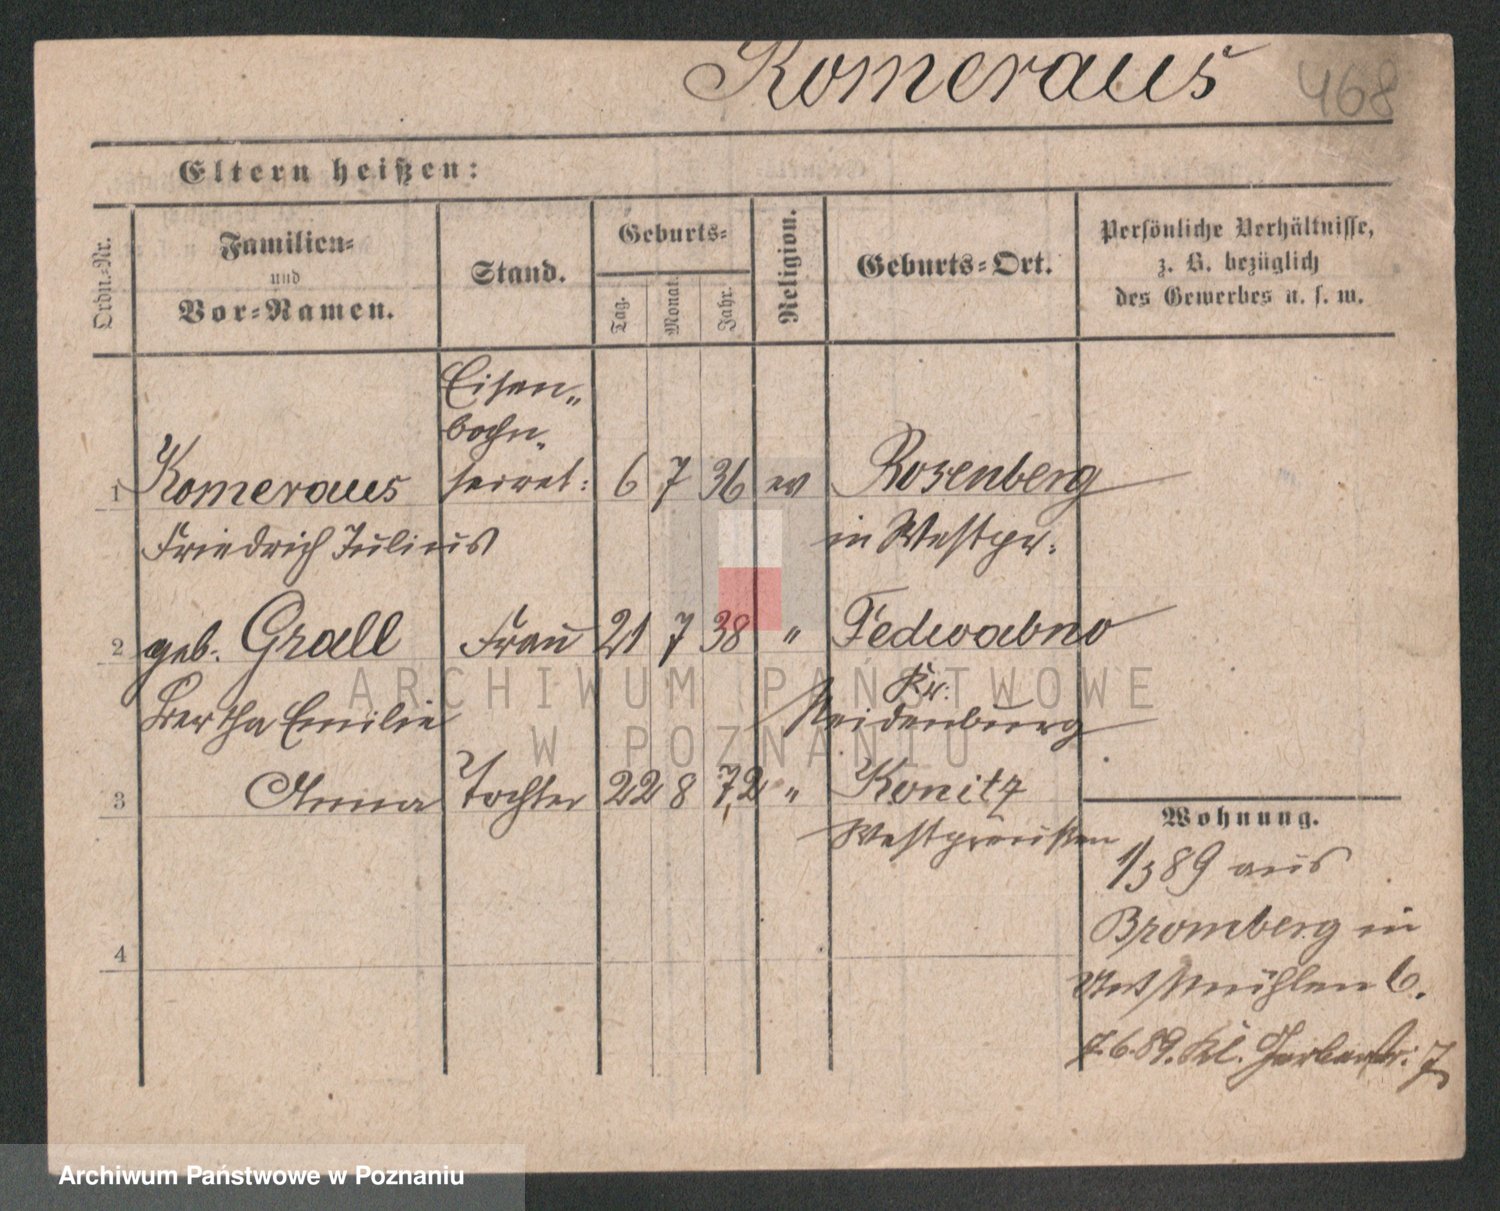 Komeraus 468
Eltern heißen:
Ordn.-Nr.
Familien-
und
Vor-Namen.
Stand.
Geburts-
Tag.
Monat.
Jahr.
Religion.
Geburts-Ort.
Persönliche Verhältnisse,
z. B. bezüglich
des Gewerbes u. s. w.
Eisen-
bahn-
1 Komeraus 6 7 36 ev Rosenberg
Friedrich Julius in Westpr.
2 geb. Grall Frau 21 7 38 " Jedwabno
Kr.
Bertha Emilie Neidenburg
3 Anna Tochter 22 8 72 " Konitz
Westpreußen
Wohnung.
1/3 89 aus
Bromberg in
4
7.6.89. Kl. Gerberstr. 7
ARCHIWUM PAŃSTWOWE
W POZNANIU
Archiwum Państwowe w Poznaniu